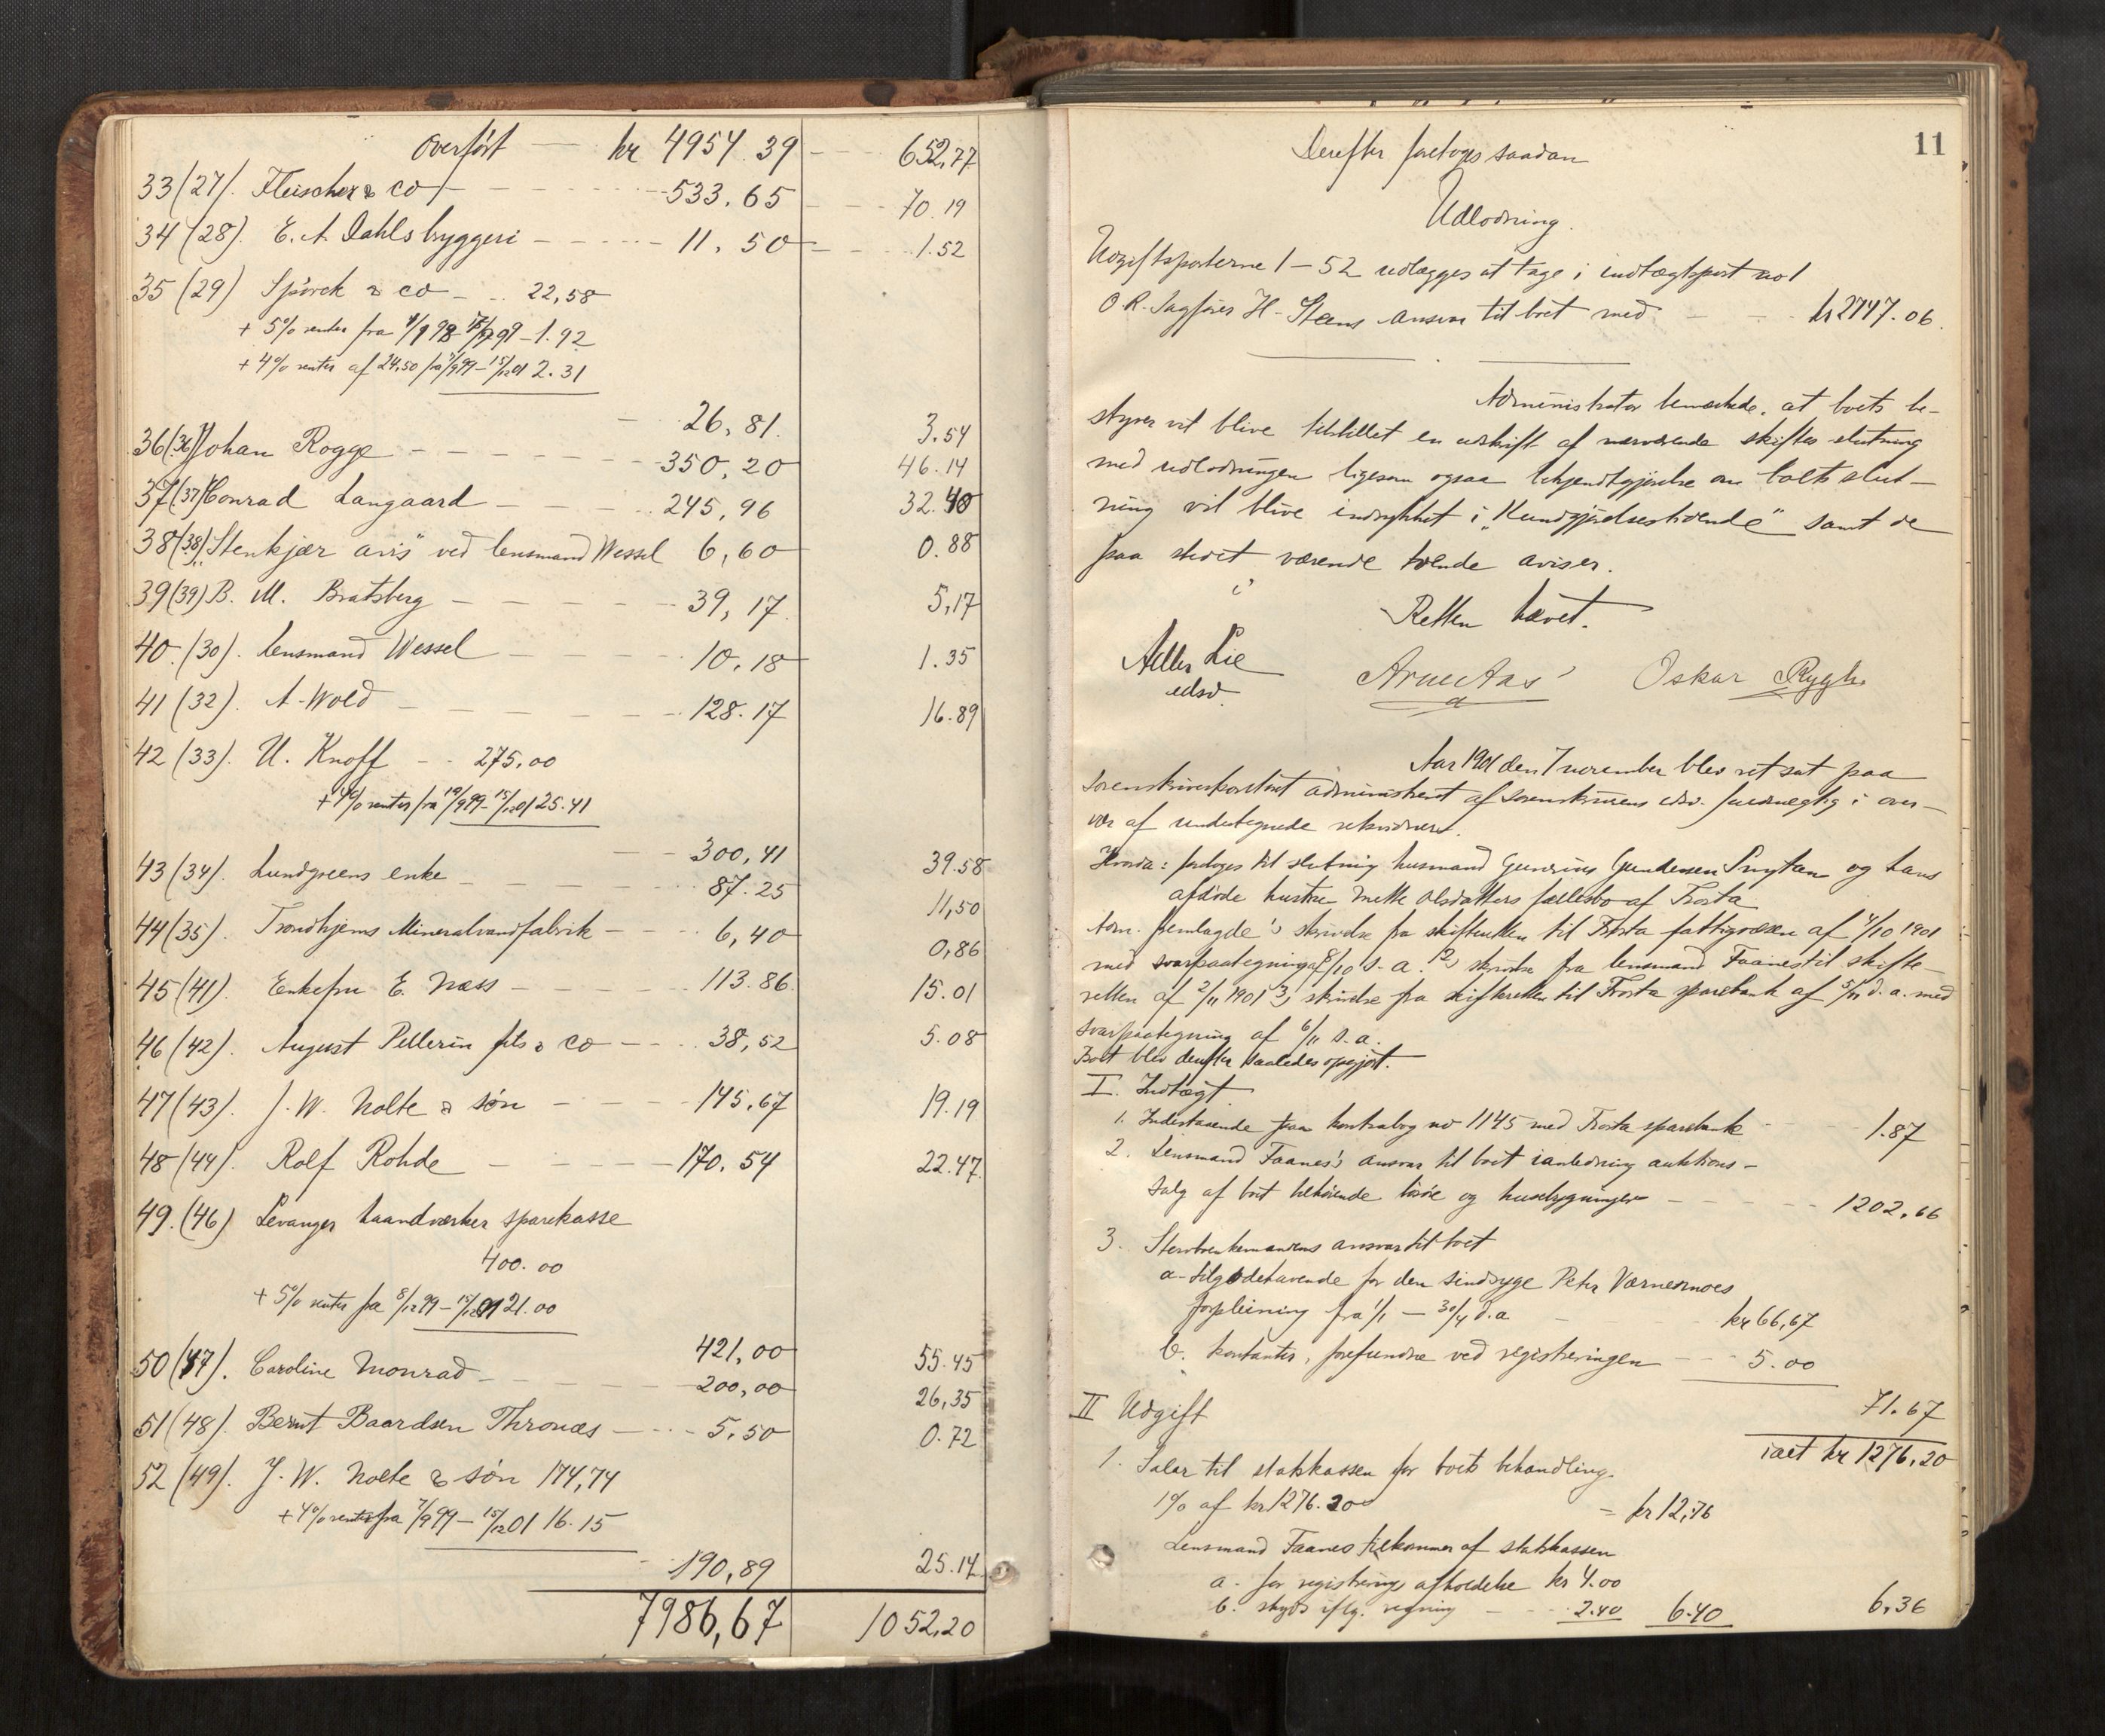 overført kr 4954.39 652,77
33 (27). Fleischer & Co 533.65 70.19
34 (28). E. A Dahls bryggeri 11,50 1.52
35 (29) Spörck & co 22,58
+ 5% renter fra 1.92
+ 4% renter af 24,50 fra 2.31
26,81. 3,54
36 (36) Johan Rogge 350,20 46.14
37 (37) Conrad Langaard 245,96 32.40
38 (38) "Stenkjær avis" ved lensmand Wessel 6,60 0.88
39 (39) B. M. Bratsberg 39,17 5,17
40. (30). lensmand Wessel 10,18 1.35
41 (32). A. Wold 128.17 16.89
42 (33). U. Knoff 275,00
+ 4% renter fra 19/9 99 – 15/12 01 25.41
300,41 39.58
43 (34). Lundgreens enke 87.25 11,50
44 (35). Trondhjems Mineralvandfabrik 6,40 0,86
45 (41). Enkefru E. Næss 113.86 15.01
46 (42). August Pellerin fils & co 38,52 5.08
47 (43). J. W. Nolte & søn 145,67 19.19
48 (44). Rolf Rohde 170,54 22.47
49. (46) Levanger haandværker sparekasse
400.00
+ 5% renter fra 8/12 99 – 21.00
421,00 55.45
50 (47). Caroline Monrad 200,00 26,35
51 (48). Bernt Baardsen Thronæs 5,50 0.72
52 (49). J. W. Nolte & søn 174,74
+ 4% renter fra 7/9 99 – 15/12 01 16.15
190,89 25.14
7986,67 1052,20
11
Derefter foretoges saadan
Udlodning.
Udgiftsposterne 1 – 52 udlægges at tage i indtægtspost no 1
O. R. Sagfører H. Steens ansvar til boet med kr 2747.06.
Administrator bemærkede, at boets be-
styrer vil blive tilstillet en udskrift af nærværende skiftes slutning
med udlodningen ligesom ogsaa bekjendtgjørelse om boets slut-
ning vil blive indrykket i "Kundgjørelsestidende" samt de
paa stedet værende tvende aviser.
Retten hævet.
Lie Arne Aas Oskar Rygh
edsv.
Aar 1901 den 7 november blev ret sat paa
sorenskriverkontoret administreret af sorenskriverens edsv. fuldmægtig i over-
vær af undertegnede retsvidner.
Hvorda: foretoges til slutning husmand Gundersen og hans
afdøde hustru Mette Olsdatters fællesbo af Frosta
Adm. fremlagde 1) skrivelse fra skifteretten til Frosta fattigvæsen af 4/10 1901
med svarpaategning af 8/10 d. a. 2) skrivelse fra lensmand Faanes til skifte-
retten af 2/11 1901 3) skrivelse fra skifteretten til Frosta sparebank af 5/11 d. a. med
svarpaategning af 6/11 d. a.
Boet blev derefter saaledes opgjort.
I. Indtægt
1. Indestaaende paa kontrabog no 1145 med Frosta sparebank 1.87
2. Lensmand Faanes's ansvar til boet i anledning auktions-
salg af boet tilhørende løsøre og husebygninger 1202,66
3. Stervboenkemandens ansvar til boet
a. tilgodehavende for den sindsyge Peter Værnesmoes
forpleining fra 1/1 – 30/4 d. a kr 66,67
b. kontanter, forefundne ved registreringen 5.00
71.67
II Udgift ialt kr 1276,20
1. Salær til statskassen for boets behandling
1% af kr 1276.20 = kr 12,76
Lensmand Faanes tilkommer af statskassen
a. for registrerings afholdelse kr 4.00
b. skyds iflg. regning 2.40 6.40 6,36